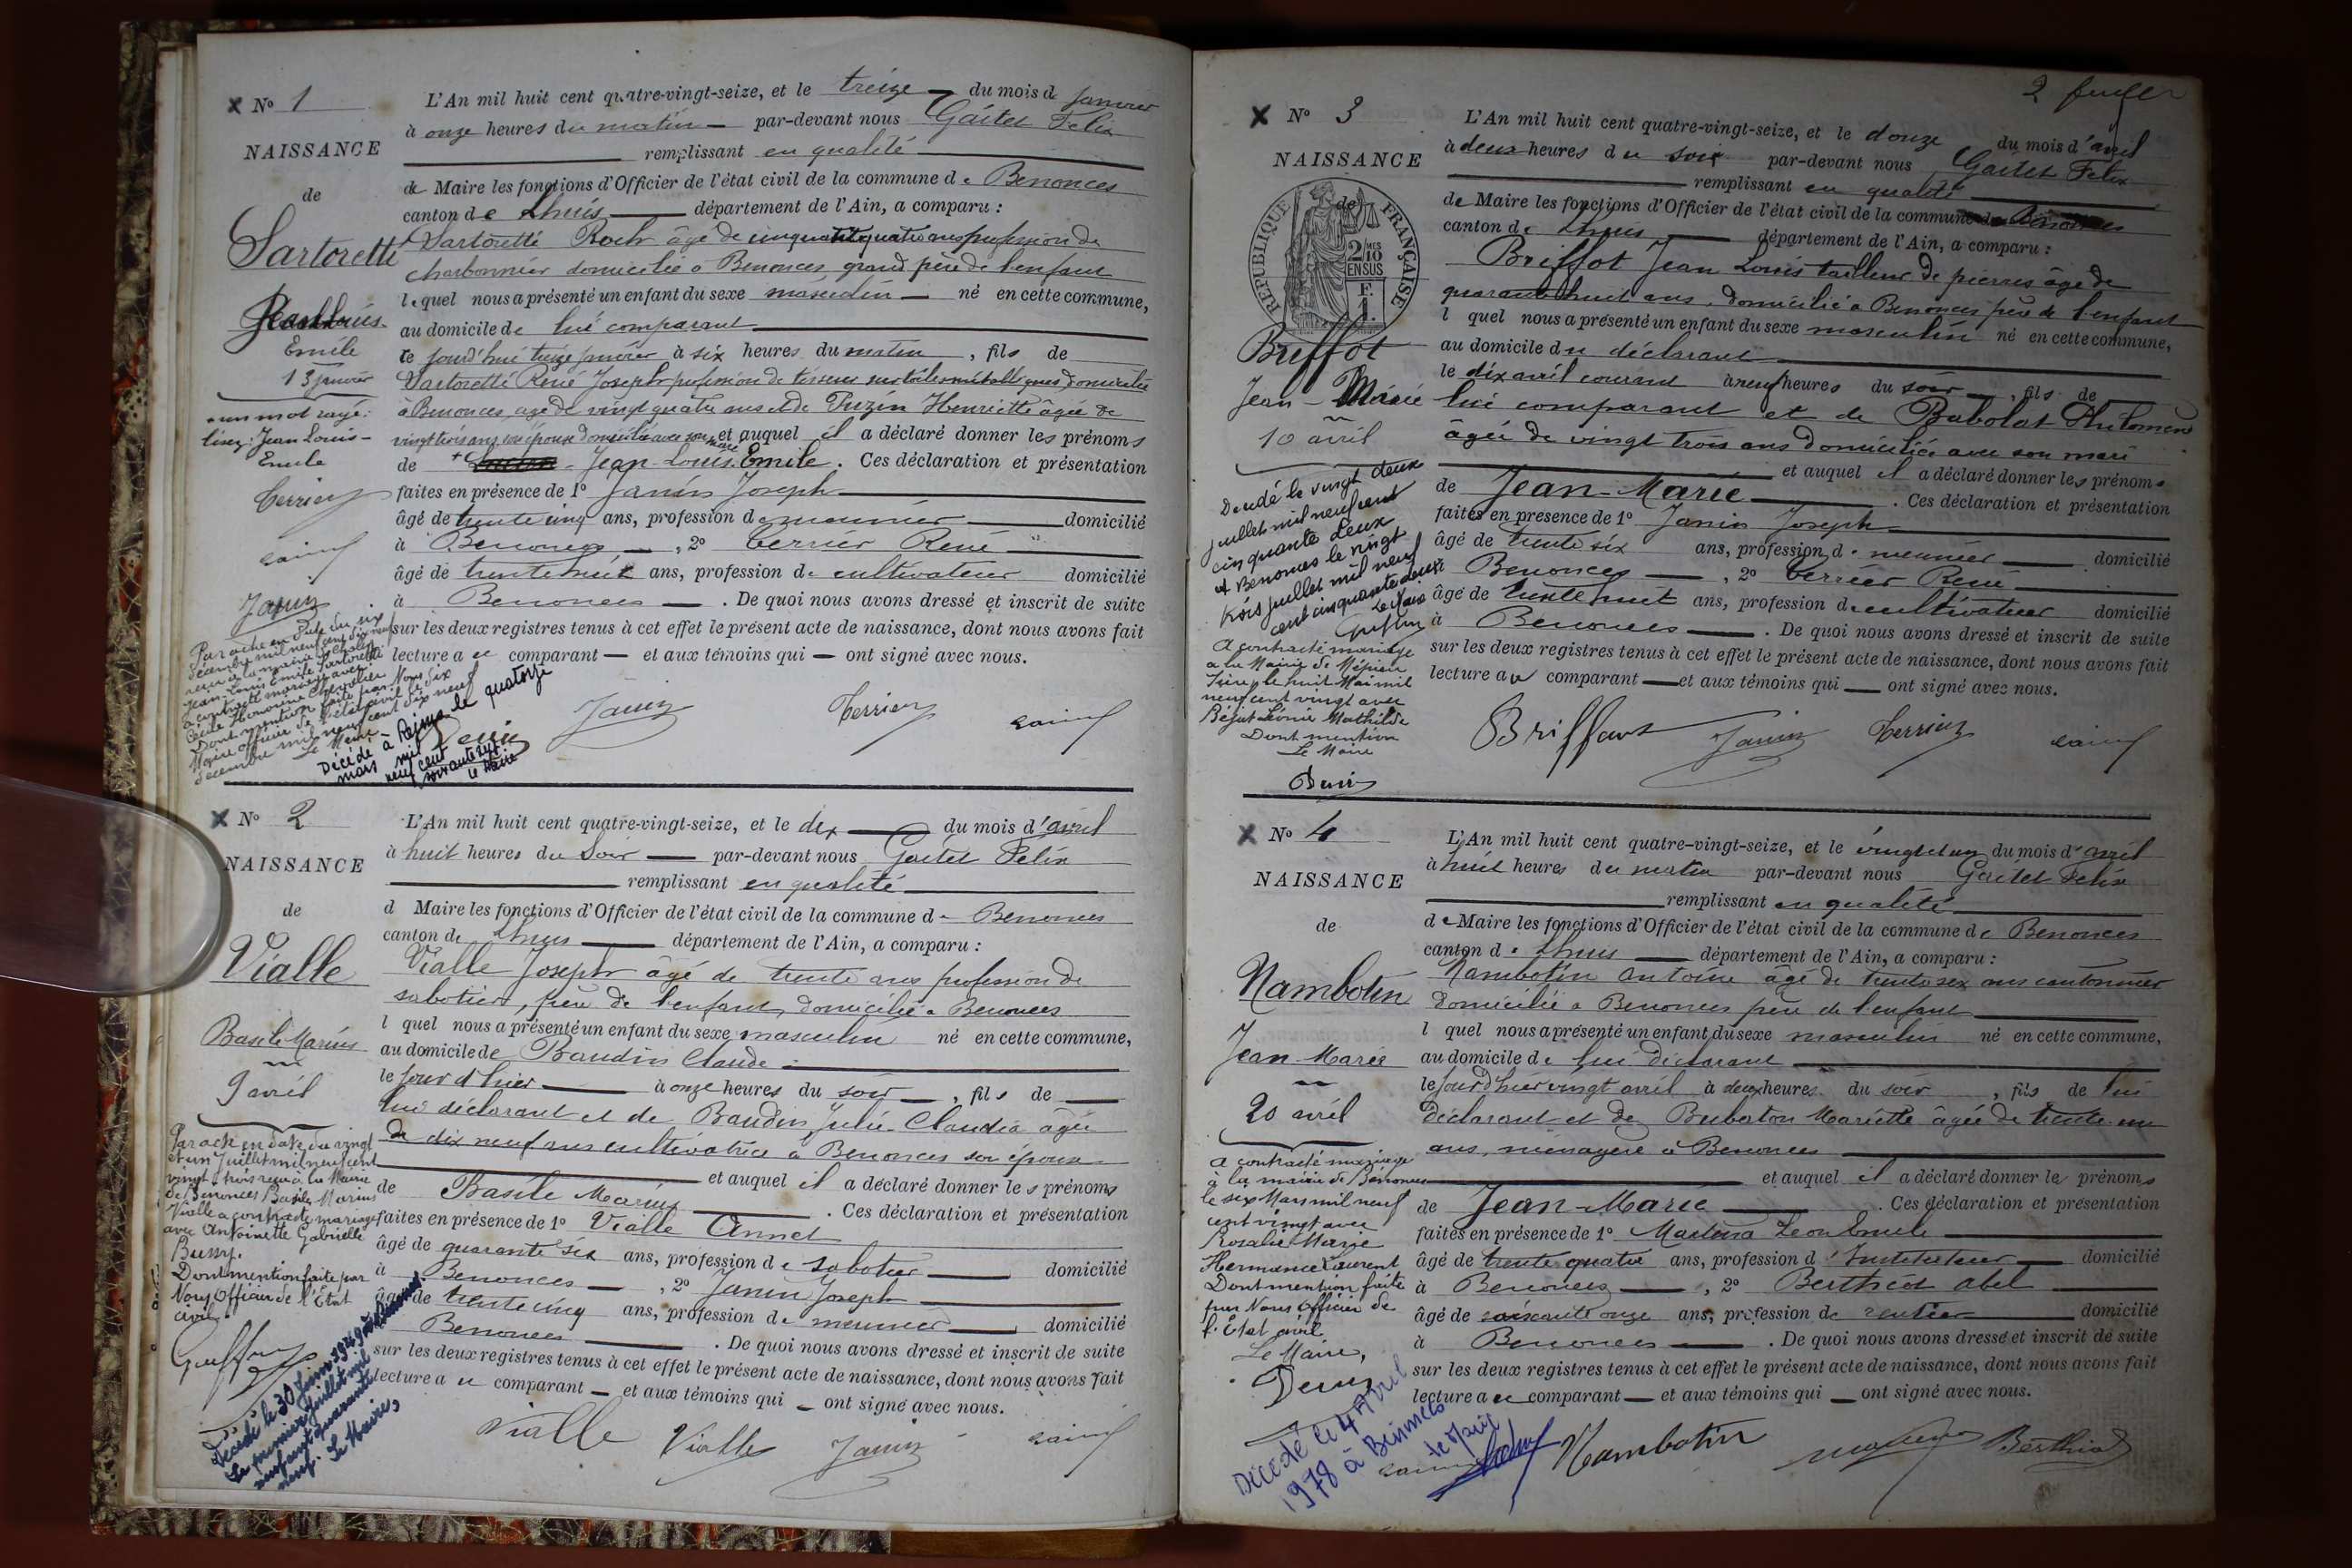 N° 1
NAISSANCE
de
Sartoretti
Jean Louis
Emile
13 janvier
un mot rayé:
lisez: Jean Louis-
Emile
Terrier
Janin
Par acte en date du six
décembre mil neuf cent dix neuf
reçu à la mairie de
Jean-Louis Emile Sartoretti
a contracté mariage avec
Cécile Honorine Chevalier
Dont mention faite par Nous
Maire officier de l'état civil le six
décembre mil neuf cent dix neuf
Le Maire
Décédé à Reims le quatorze
mars mil
neuf cent
soixante
Le Maire
L'An mil huit cent quatre-vingt-seize, et le treize du mois de janvier
à onze heures du matin par-devant nous Gaitet Felix
remplissant en qualité
de Maire les fonctions d'Officier de l'état civil de la commune de Benonces
canton de Lhuis département de l'Ain, a comparu :
Sartoretti Roch âgé de cinquante quatre ans profession de
charbonnier domicilié à Benonces grand père de l'enfant
lequel nous a présenté un enfant du sexe masculin né en cette commune,
au domicile de lui comparant
ce jourd'hui treize janvier à six heures du matin, fils de
Sartoretti René Joseph profession de tisseur sur toiles métalliques domicilié
à Benonces, âgé de vingt quatre ans et de Puzin Henriette âgée de
vingt trois ans son épouse domiciliée avec son mari et auquel il a déclaré donner les prénoms
de Jean-Louis Emile. Ces déclaration et présentation
faites en présence de 1° Janin Joseph
âgé de trente cinq ans, profession de meunier domicilié
à Benonces, 2° Terrier René
âgé de trente huit ans, profession de cultivateur domicilié
à Benonces. De quoi nous avons dressé et inscrit de suite
sur les deux registres tenus à cet effet le présent acte de naissance, dont nous avons fait
lecture au comparant et aux témoins qui ont signé avec nous.
Janin Terrier
N° 2
NAISSANCE
de
Vialle
Basile Marius
9 avril
Par acte en date du vingt
et un Juillet mil neuf cent
vingt trois reçu à la Mairie
de Benonces Basile Marius
Vialle a contracté mariage
avec Antoinette Gabrielle
Buessy.
Dont mention faite par
Nous Officier de l'Etat
civil.
Décédé le 30 Juin 1949 à Benonces
Le premier juillet mil
neuf cent quarante
neuf. Le Maire,
L'An mil huit cent quatre-vingt-seize, et le dix du mois d'avril
à huit heures du soir par-devant nous Gaitet Felix
remplissant en qualité
d Maire les fonctions d'Officier de l'état civil de la commune de Benonces
canton de Lhuis département de l'Ain, a comparu :
Vialle Joseph âgé de trente ans profession de
sabotier, père de l'enfant, domicilié à Benonces
l quel nous a présenté un enfant du sexe masculin né en cette commune,
au domicile de Baudin Claude
le jour d'hier à onze heures du soir, fils de
lui déclarant et de Baudin Julie-Claudia âgée
de dix neuf ans cultivatrice à Benonces son épouse
et auquel il a déclaré donner les prénoms
de Basile Marius. Ces déclaration et présentation
faites en présence de 1° Vialle Annet
âgé de quarante six ans, profession de sabotier domicilié
à Benonces, 2° Janin Joseph
âgé de trente cinq ans, profession de meunier domicilié
Benonces. De quoi nous avons dressé et inscrit de suite
sur les deux registres tenus à cet effet le présent acte de naissance, dont nous avons fait
lecture au comparant et aux témoins qui ont signé avec nous.
Vialle Vialle Janin
N° 3
NAISSANCE
de
REPUBLIQUE FRANÇAISE
2/10 MES
EN SUS
F.
1.
Briffot
Jean-Marie
10 avril
Décédé le vingt deux
juillet mil neuf cent
cinquante deux
à Benonces le vingt
trois juillet mil neuf
cent cinquante deux
Le Maire
A contracté mariage
à la Mairie de Mépieu
Isère le huit Mai mil
neuf cent vingt avec
Béjut Léonie Mathilde
Dont mention
Le Maire
L'An mil huit cent quatre-vingt-seize, et le douze du mois d'avril
à deux heures du soir par-devant nous Gaitet Felix
remplissant en qualité
de Maire les fonctions d'Officier de l'état civil de la commune de Benonces
canton de Lhuis département de l'Ain, a comparu :
Briffot Jean Louis tailleur de pierres âgé de
quarante huit ans, domicilié à Benonces père de l'enfant
l quel nous a présenté un enfant du sexe masculin né en cette commune,
au domicile du déclarant
le dix avril courant à neuf heures du soir, fils de
lui comparant et de Babolat Philomène
âgée de vingt trois ans domiciliée avec son mari
et auquel il a déclaré donner les prénoms
de Jean-Marie. Ces déclaration et présentation
faites en présence de 1° Janin Joseph
âgé de trente six ans, profession de meunier domicilié
à Benonces, 2° Terrier René
âgé de trente huit ans, profession de cultivateur domicilié
à Benonces. De quoi nous avons dressé et inscrit de suite
sur les deux registres tenus à cet effet le présent acte de naissance, dont nous avons fait
lecture au comparant et aux témoins qui ont signé avec nous.
Janin Terrier
N° 4
NAISSANCE
de
Nambotin
Jean-Marie
20 avril
A contracté mariage
à la mairie de Bénonces
le six Mars mil neuf
cent vingt avec
Rosalie Marie
Hermance Laurent
Dont mention faite
par Nous Officier de
l'Etat civil
Le Maire,
Décédé le 4 Avril
1978 à Bénonces
le Maire
L'An mil huit cent quatre-vingt-seize, et le vingt et un du mois d'avril
à huit heures du matin par-devant nous Gaitet Felix
remplissant en qualité
de Maire les fonctions d'Officier de l'état civil de la commune de Benonces
canton de Lhuis département de l'Ain, a comparu :
Nambotin Antoine âgé de trente six ans cantonnier
domicilié à Benonces père de l'enfant
l quel nous a présenté un enfant du sexe masculin né en cette commune,
au domicile de lui déclarant
le jour d'hier vingt avril à deux heures du soir, fils de lui
déclarant et de Bubaton Mariette âgée de trente un
ans, ménagère à Benonces
et auquel il a déclaré donner les prénoms
de Jean-Marie. Ces déclaration et présentation
faites en présence de 1° Léon Emile
âgé de trente quatre ans, profession d'Instituteur domicilié
à Benonces, 2° Berthiot Abel
âgé de soixante onze ans, profession de rentier domicilié
à Benonces. De quoi nous avons dressé et inscrit de suite
sur les deux registres tenus à cet effet le présent acte de naissance, dont nous avons fait
lecture au comparant et aux témoins qui ont signé avec nous.
Nambotin